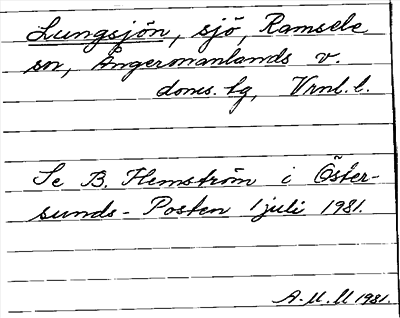 Lungsjön, sjö, Ramsele
sn, Ångermanlands v.
doms. lg, Vrnl. l.
Se B. Hemström i Öster-
sunds-Posten 1 juli 1981.
A.M.M 1981.